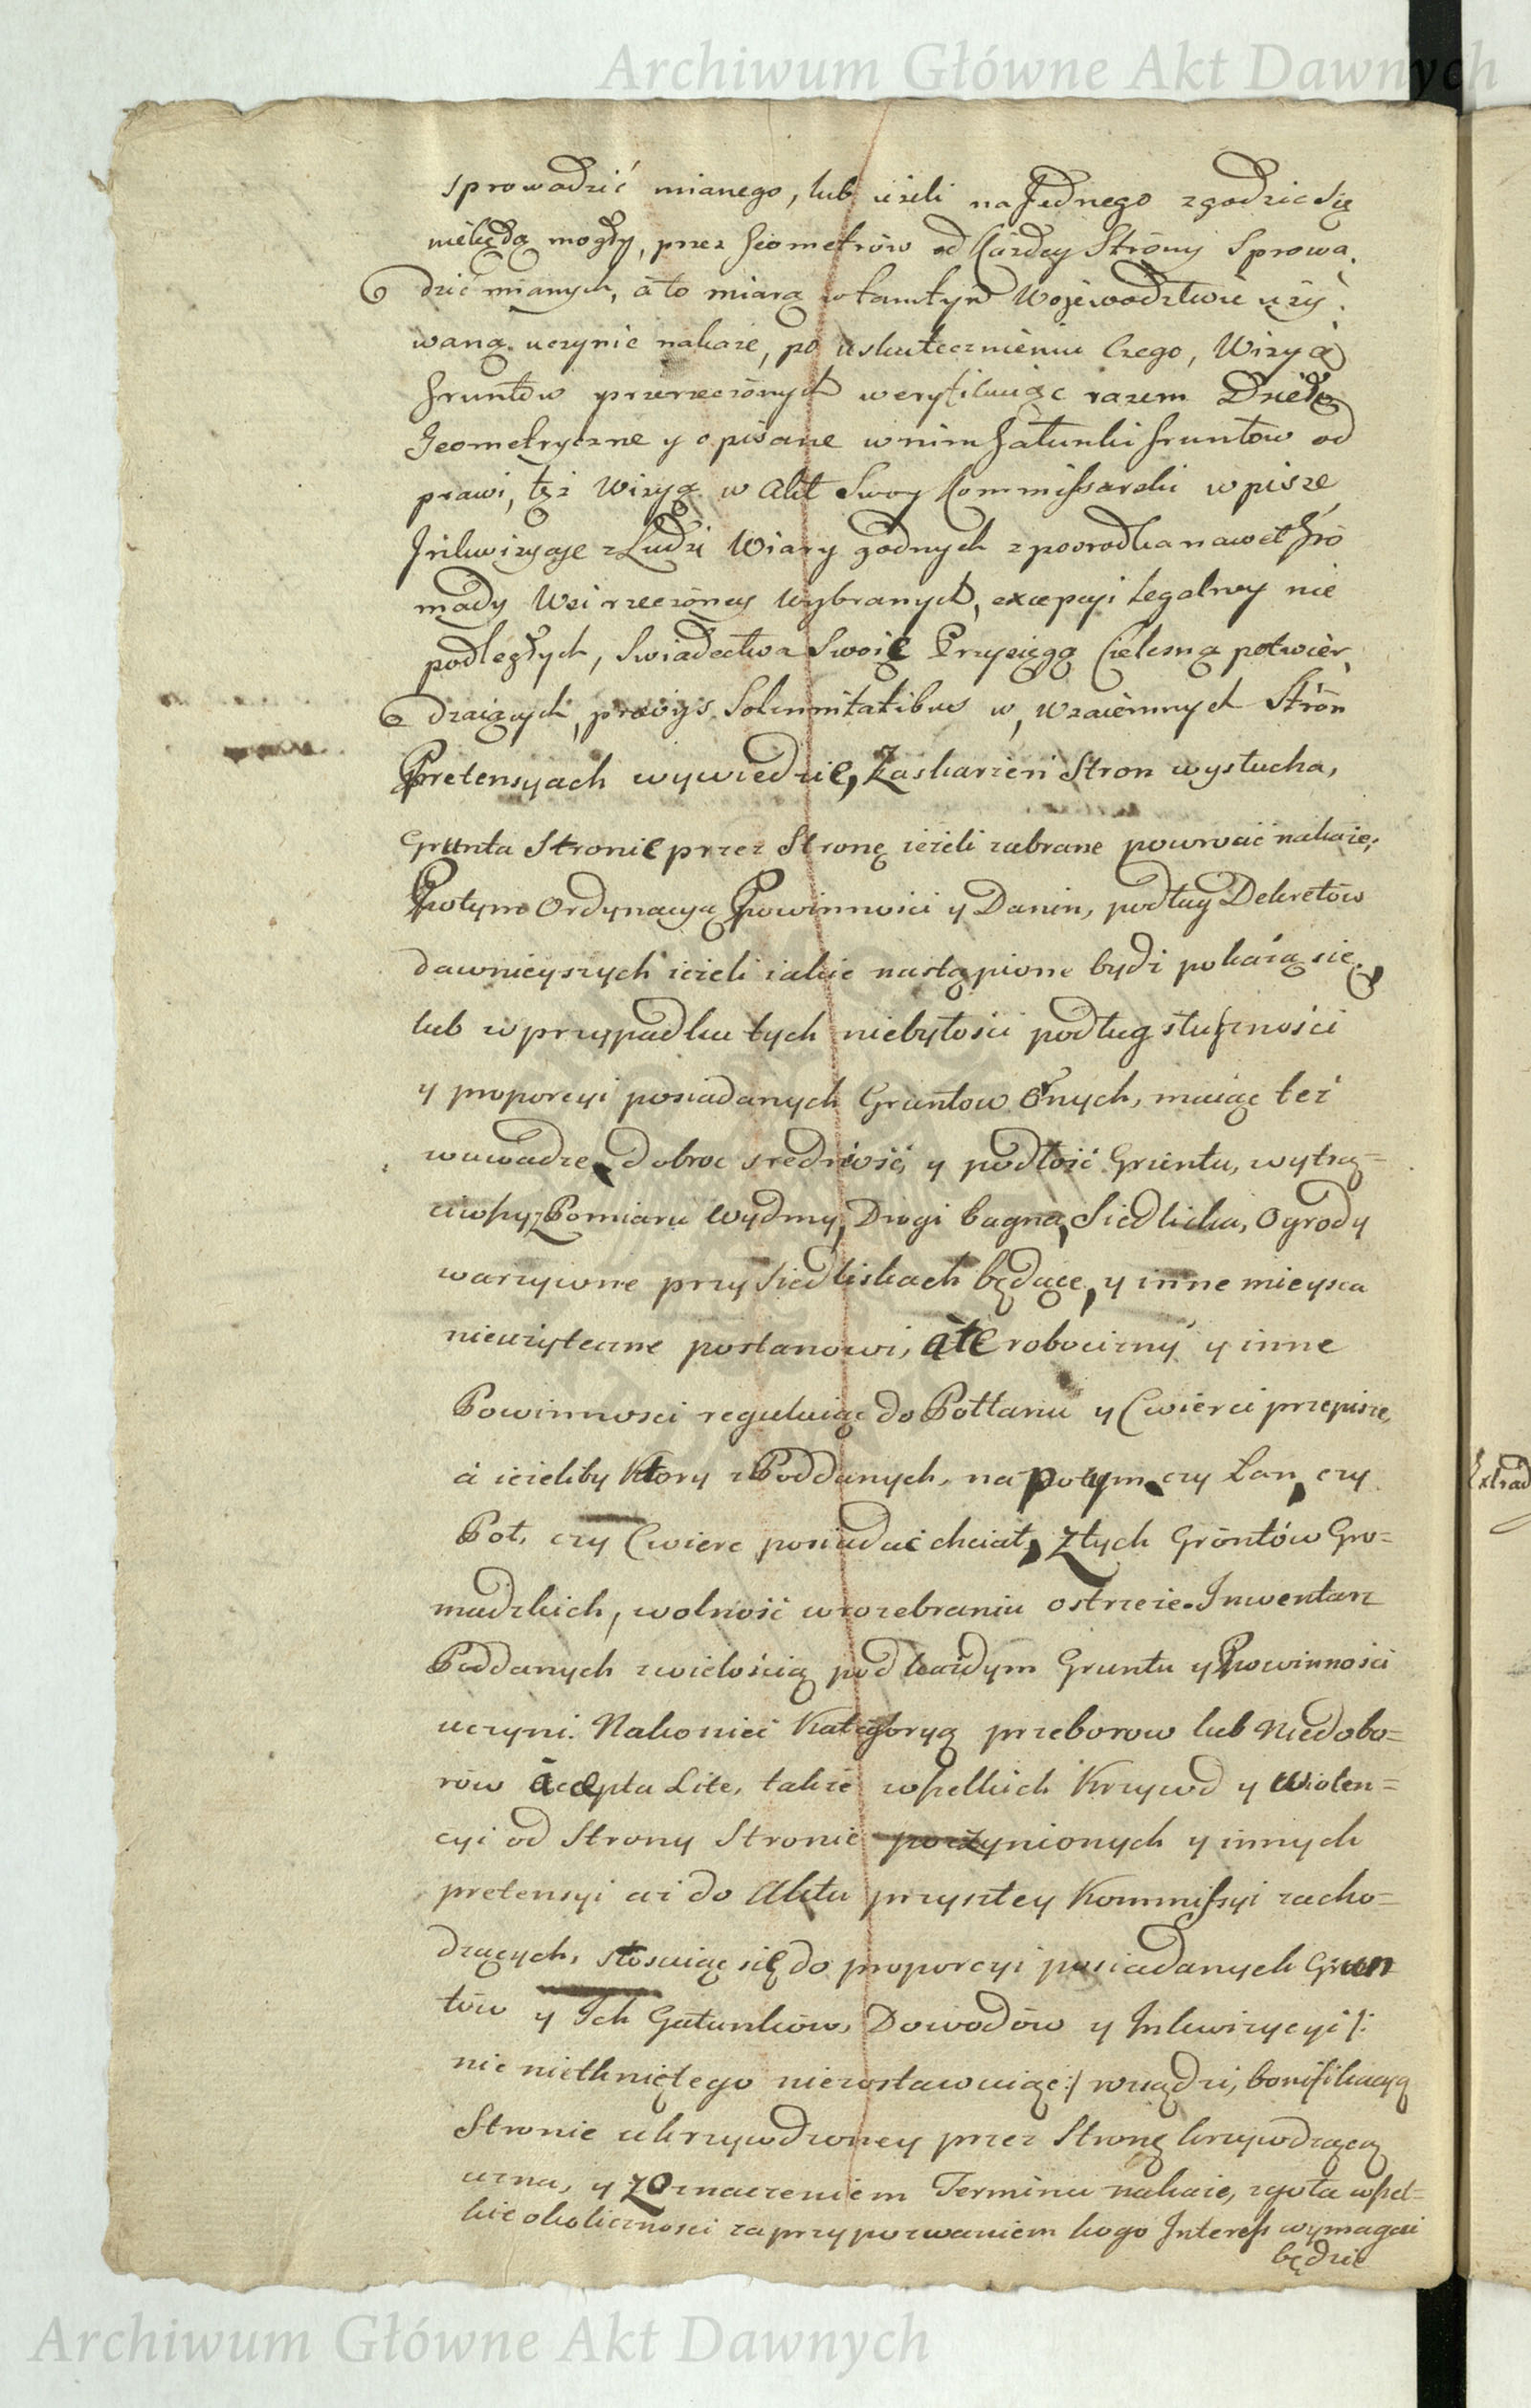 Archiwum Główne Akt Dawnych
sprowadzić mianego, lub ieżeli na Jednego zgodzic Się
niebędą mogły, przez Geometrów od Każdey Stróny Sprowa,
dzić mianych, á to miarą w tamtym Woiewodztwie uży,
waną uczynić nakaże, po uskutecznieniu Czego, Wizyą
Gruntów przerzeczónych weryfikuiąc razem Dzieło
Geometryczne y opisane w nim Gatunki Gruntów od
prawi, tęż Wizyą w Akt Swoy Kommissarski wpisze
Jnkwizycye z Ludzi Wiary godnych z posrodka nawet Gro
mady Wsi rzeczóney Wybranych, excepcyi Legalney nie
podległych, Swiadectwa Swoie Przysięgą Cielesną potwier,
dzaiących, praevys Solemnitatibus w, Wzaiemnych Strón
Pretensyach wywiedzie, Zaskarzeń Stron wysłucha,
Grunta Stronie przez Stronę ieżeli zabrane powrocić nakaże,
Potym Ordynacyą Powinnosci y Danin, podług Dekretów
dawnieyszych ieżeli iakie nastąpione bydź pokażą się,
lub w przypadku tych niebytości podług słuszności
y proporcyi posiadanych Gruntow Ornych, maiąc też
w uwadze dobroc sredniość y podłość Gruntu, wytrą=
ciwszy z Pomiaru Wydmy, Drogi bagna, Siedliska, Ogrody
warzywne przy Siedliskach będące, y inne mieysca
nieużyteczne postanowi, ále robocizny y inne
Powinnosci reguluiąc do Półłanu y Cwierci przepisze,
á ieżeliby Ktory z Poddanych, na potym czy Łan, czy
Poł, czy Cwierc posiadać chciał, z tych Gróntów Gro=
madzkich, wolność w rozebraniu ostrzeże. Inwentarz
Poddanych z wielością pod każdym Gruntu y Powinności
uczyni. Nakoniec Kategoryą przeborow lub Niedobo=
rów á cepta Lite, także wszelkich Krzywd y Wiolen=
cyi od Strony Stronie poczynionych y innych
pretensyi aż do Aktu przyszłey Kommissyi zacho=
dzących, stosuiąc się do proporcyi posiadanych Grun
tów y Ich Gatunków, Dowodów y Inkwizycyi /:
nic nietkniętego niezostawuiąc :/ rozsądzi, bonifikacyą
Stronie ukrzywdzoney przez Stronę krzywdzącą
uzna, y z Oznaczeniem Terminu nakaże, zgoła wszel=
kie okoliczności za przypozwaniem kogo Interess wymagać
będzie
Archiwum Główne Akt Dawnych